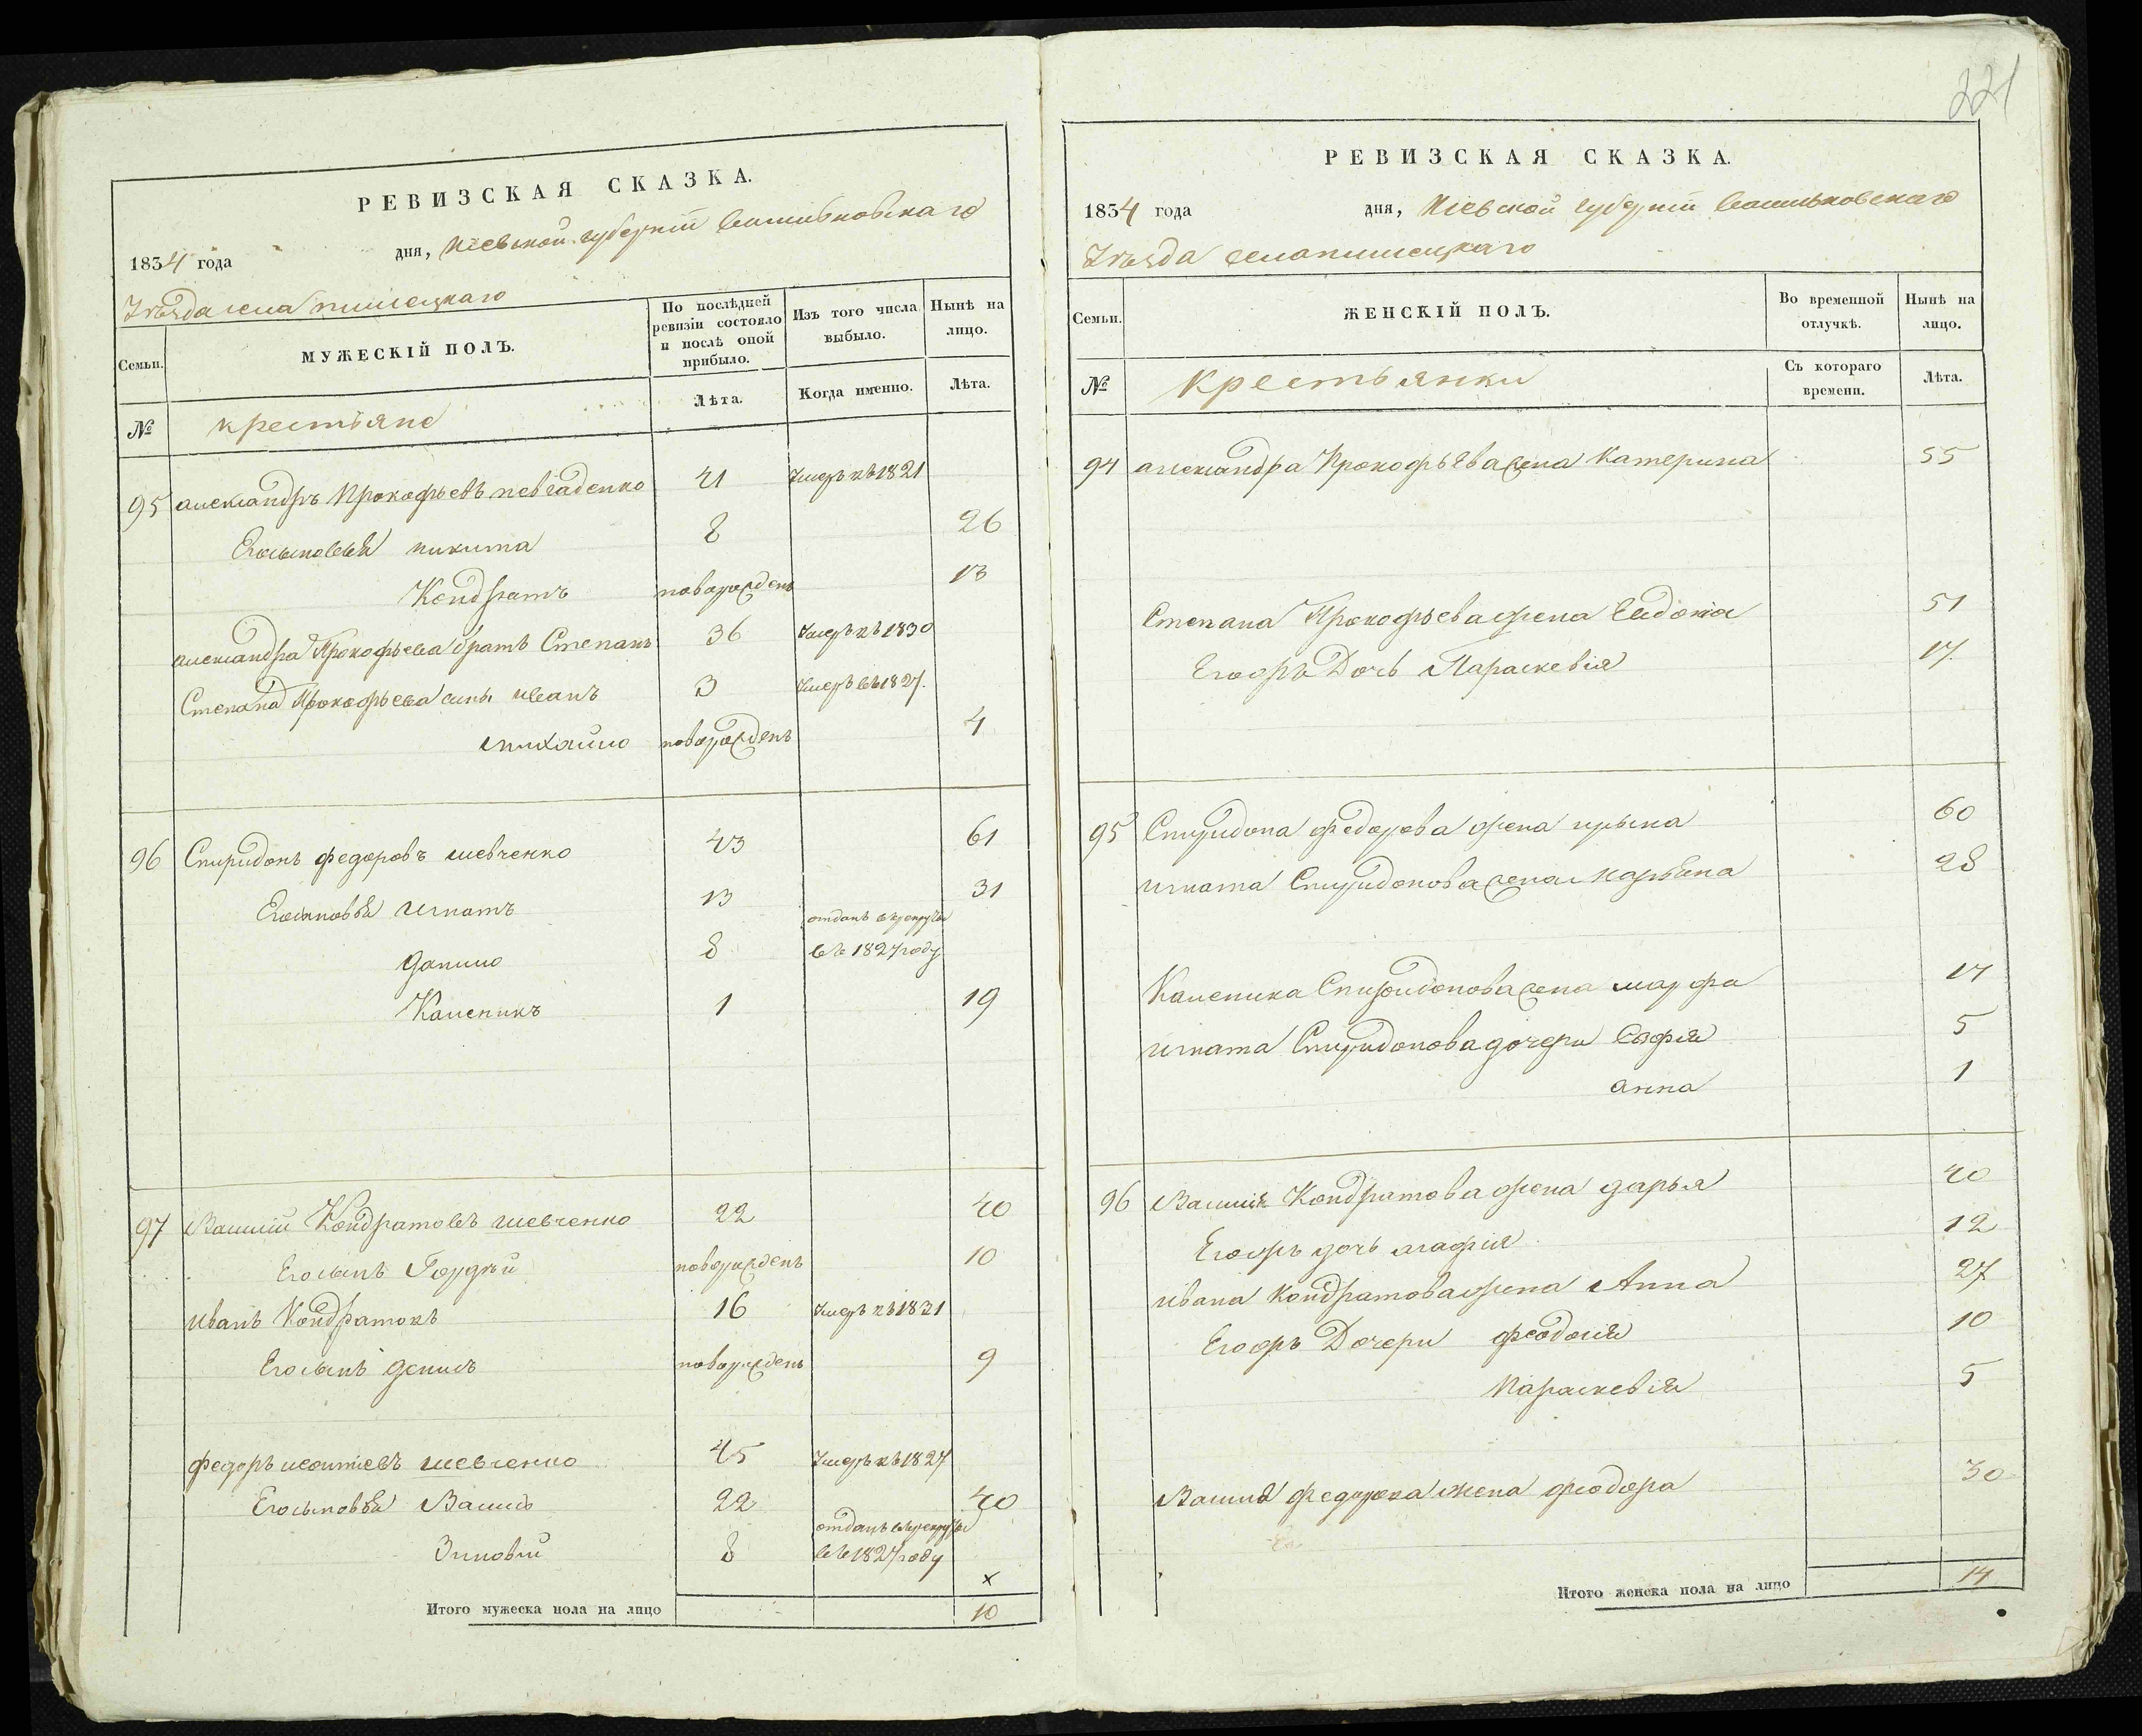 РЕВИЗСКАЯ СКАЗКА.
1834 года дня, Кіевской губерніи Васильковскаго
Уѣзда села
МУЖЕСКІЙ ПОЛЪ.
Семьи.
По послѣдней ревизіи состояло и послѣ оной прибыло.
Изъ того числа выбыло.
Нынѣ на лицо.
№ крестьяне
Лѣта. Когда именно. Лѣта.
95 александръ Прокофьевъ 41 Умеръ въ 1821
Егосыновья никита 8 26
Кондратъ новорожденъ 13
александра Прокофьева братъ Степанъ 36 Умеръ въ 1830
Степана Прокофьева сыны иванъ 3 Умеръ въ 1827.
михайло новорожденъ 4
96 Спиридонъ федоровъ шевченко 43 61
Егосыновья игнатъ 13 31
данило 8 отданъ в рекруты въ 1827 году
Каленикъ 1 19
97 Василій Кондратовъ шевченко 22 40
Егосынъ Гордѣй новорожденъ 10
иванъ Кондратовъ 16 Умеръ въ 1831
Егосынъ денисъ новорожденъ 9
федоръ леонтіевъ шевченко 45 Умеръ въ 1827
Егосыновья Василь 22 40
Зиновій 8 отданъ в рекруты въ 1827 году
x
Итого мужеска пола на лицо 10
221
РЕВИЗСКАЯ СКАЗКА.
1834 года дня, Кіевской губерніи Васильковскаго
Уѣзда села
Семьи.
ЖЕНСКІЙ ПОЛЪ.
Во временной отлучкѣ.
Нынѣ на лицо.
№ Крестьянки
Съ котораго времени.
Лѣта.
94 александра Прокофьева жена Катерина 55
Степана Прокофьева жена Евдокія 51
Егооръ Дочь Параскевія 17.
95 Спиридона федорова жена ирына 60
игната Спиридонова жена марьяна 28
Каленика Спиридонова жена марфа 17
игната Спиридонова дочери Софія 5
анна 1
96 Василія Кондратова жена дарья 40
Егооръ дочь агафія 12
ивана Кондратова жена Анна 27
Егооръ Дочери феодосія 10
Параскевія 5
Василя федорова жена феодора 30
Итого женска пола на лицо 14